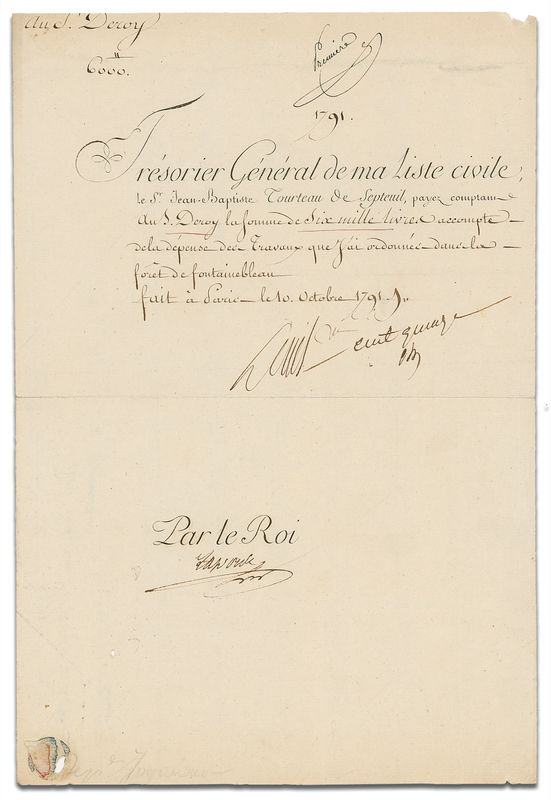 au S.r Deroy
6000.tt
Premiere
1791.
Trésorier Général de ma Liste civile,
le S.r Jean-Baptiste Tourteau de Septeuil, payez comptant
au S. Deroy la somme de Six mille livres accompte
de la dépense des Travaux que j'ai ordonnés dans la
forêt de fontainebleau
fait à Paris le 10. Octobre 1791 ./.
Louis
Par le Roi
Laporte